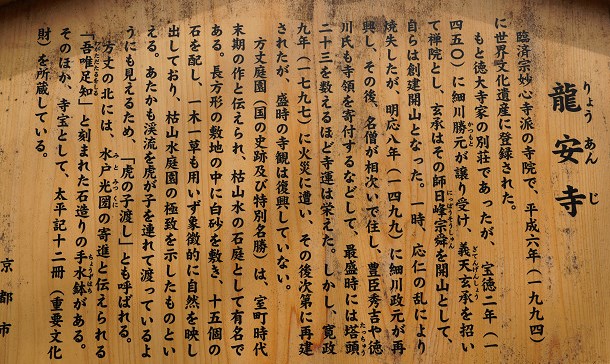 龍安寺
りょうあんじ
臨済宗妙心寺派の寺院で、平成六年(一九九四)
に世界文化遺産に登録された。
もと徳大寺家の別荘であったが、宝徳二年(一
四五〇)に細川勝元が譲り受け、義天玄承を招い
かつもと
ぎてんげんしょう
て禅院とし、玄承はその師日峰宗舜を開山として、
にっぽうそうしゅん
自らは創建開山となった。一時、応仁の乱により
焼失したが、明応八年(一四九九)に細川政元が再
興し、その後、名僧が相次いで住し、豊臣秀吉や徳
川氏も寺領を寄付するなどして、最盛時には塔頭
たっちゅう
二十三を数えるほど寺運は栄えた。しかし、寛政
九年(一七九七)に火災に遭い、その後次第に再建
されたが、盛時の寺観は復興していない。
方丈庭園(国の史跡及び特別名勝)は、室町時代
末期の作と伝えられ、枯山水の石庭として有名で
ある。長方形の敷地の中に白砂を敷き、十五個の
石を配し、一木一草も用いず象徴的に自然を映し
出しており、枯山水庭園の極致を示したものとい
える。あたかも渓流を虎が子を連れて渡っているよ
うにも見えるため、「虎の子渡し」とも呼ばれる。
方丈の北には、水戸光圀の寄進と伝えられる
みとみつくに
「吾唯足知」と刻まれた石造りの手水鉢がある。
われただたるをしる
ちょうずばち
そのほか、寺宝として、太平記十二冊(重要文化
財)を所蔵している。
京都市